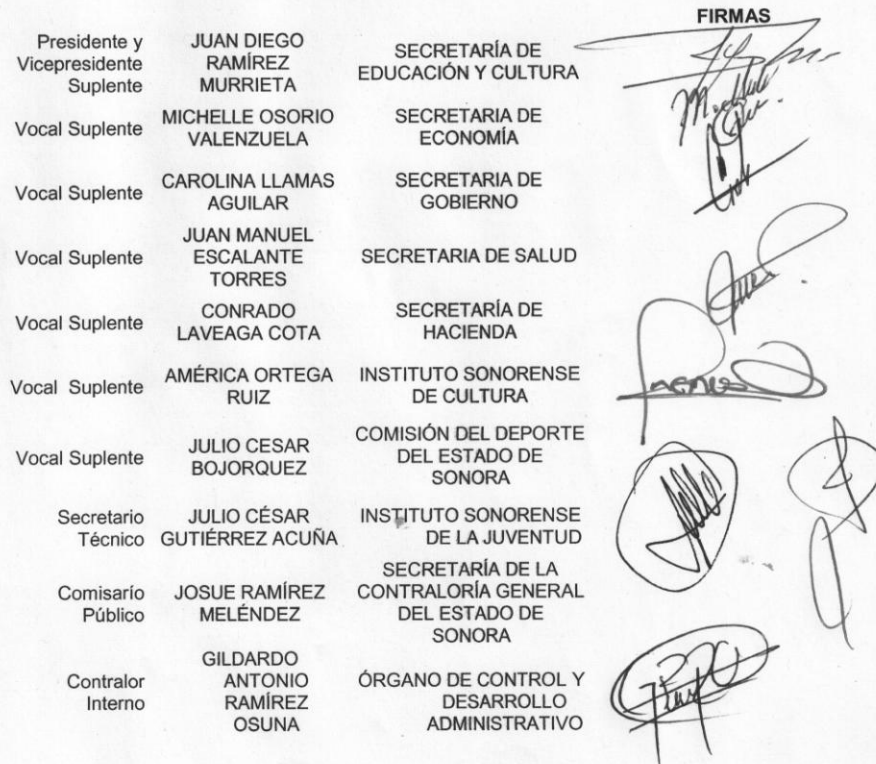 FIRMAS
Presidente y
Vicepresidente
Suplente
JUAN DIEGO
RAMÍREZ
MURRIETA
SECRETARÍA DE
EDUCACIÓN Y CULTURA
Vocal Suplente
MICHELLE OSORIO
VALENZUELA
SECRETARIA DE
ECONOMÍA
Vocal Suplente
CAROLINA LLAMAS
AGUILAR
SECRETARIA DE
GOBIERNO
Vocal Suplente
JUAN MANUEL
ESCALANTE
TORRES
SECRETARIA DE SALUD
Vocal Suplente
CONRADO
LAVEAGA COTA
SECRETARÍA DE
HACIENDA
Vocal Suplente
AMÉRICA ORTEGA
RUIZ
INSTITUTO SONORENSE
DE CULTURA
Vocal Suplente
JULIO CESAR
BOJORQUEZ
COMISIÓN DEL DEPORTE
DEL ESTADO DE
SONORA
Secretario
Técnico
JULIO CÉSAR
GUTIÉRREZ ACUÑA
INSTITUTO SONORENSE
DE LA JUVENTUD
Comisario
Público
JOSUE RAMÍREZ
MELÉNDEZ
SECRETARÍA DE LA
CONTRALORÍA GENERAL
DEL ESTADO DE
SONORA
Contralor
Interno
GILDARDO
ANTONIO
RAMÍREZ
OSUNA
ÓRGANO DE CONTROL Y
DESARROLLO
ADMINISTRATIVO